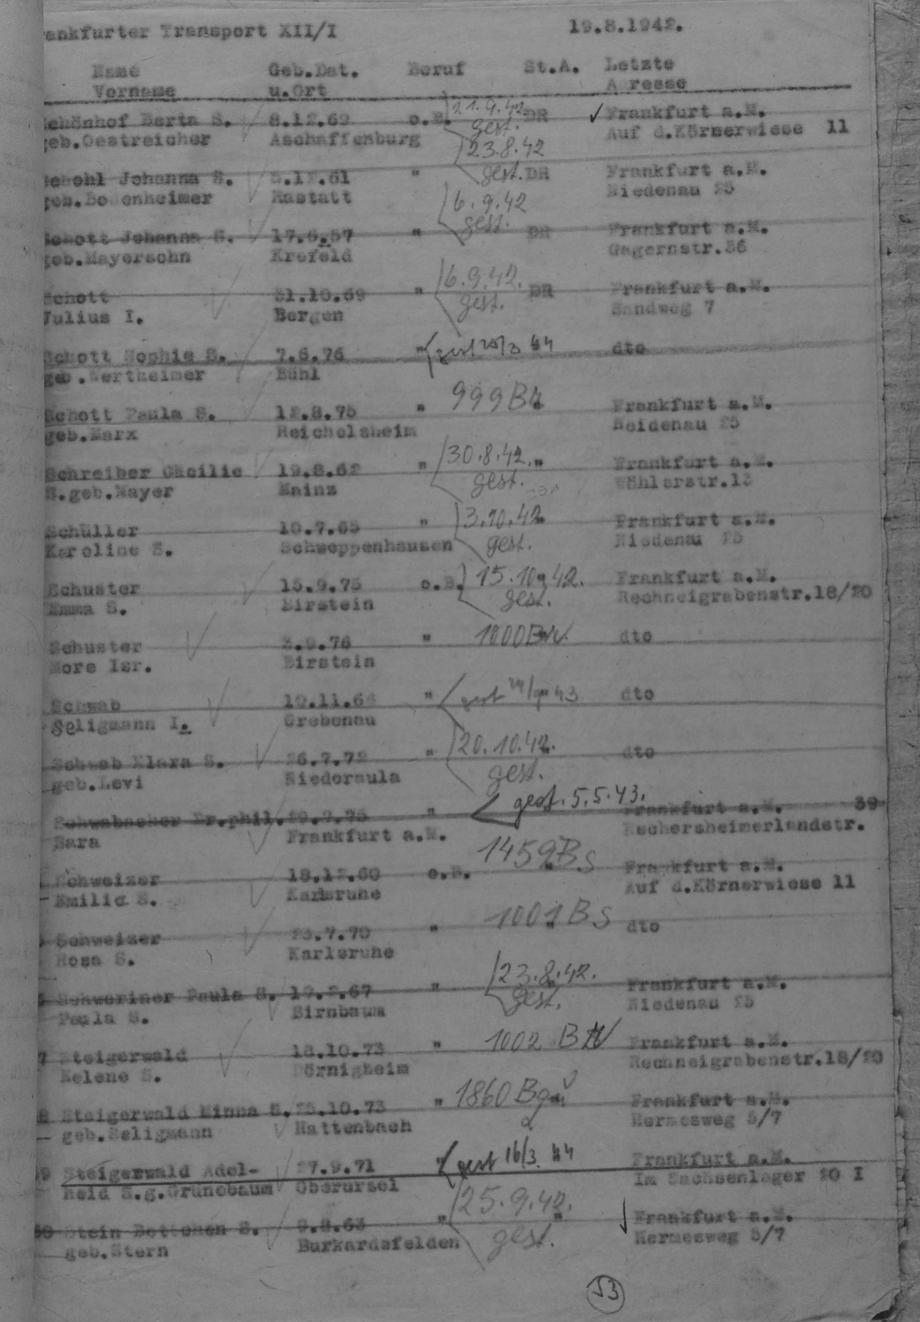 ankfurter Transport XII/I 19.8.1942.
Name Geb.Dat. Beruf St.A. Letzte
Vorname u.Ort Adresse
chönhof Berta S. 8.12.69 o.B. 21.9.42 gest. DR Frankfurt a.M.
geb.Oestreicher Aschaffenburg Auf d.Körnerwiese 11
Johanna S. " 23.8.42 gest. DR Frankfurt a.M.
Rastatt Niedenau 25
Schott Johanna S. " 6.9.42 gest. DR Frankfurt a.M.
geb.Mayersohn Krefeld Gagernstr.36
Schott 31.10.69 " 6.9.42. gest. DR Frankfurt a.M.
Julius I. Bergen Sandweg 7
Schott Sophie S. 7.6.76 " gest 44 dto
geb.Wertheimer Bühl
Schott Paula S. 12.8.75 " 999 Frankfurt a.M.
geb.Marx Reichelsheim 25
Schreiber Cäcilie 19.8.62 " 30.8.42. gest. Frankfurt a.M.
S.geb.Mayer Mainz Wöhlerstr.13
Schüller 10.7.65 " 3.10.42 gest. Frankfurt a.M.
Karoline S. Schweppenhausen Niedenau 25
Schuster 15.9.75 o.B. 15.10.42. gest. Frankfurt a.M.
Emma S. Birstein Rechneigrabenstr.18/20
Schuster .9.76 " 1000 dto
More Isr. Birstein
Schwab 10.11.6 " gest 43 dto
Seligmann I. Grebenau
Schwab Klara S. 26.7.72 " 20.10.42. gest. dto
geb.Levi Niederaula
Schwabacher Dr.phil. " gest. 5.5.43. Frankfurt a.M. 39
Sara Frankfurt a.M. Eschersheimerlandstr.
Schweizer 18.12.60 o.B. 1459 Bs Frankfurt a.M.
Emilie S. Karlsruhe Auf d.Körnerwiese 11
Schweizer .7.70 " 1001 Bs dto
Rosa S. Karlsruhe
Schweriner Paula S. 19.2.67 " 23.8.42. gest. Frankfurt a.M.
Paula S. Birnbaum Niedenau 25
7 Steigerwald 18.10.73 " 1002 Frankfurt a.M.
Helene S. Dörnigheim Rechneigrabenstr.18/20
8 Steigerwald Minna S. 25.10.73 " 1860 Frankfurt a.M.
geb.Seligmann Hattenbach Hermesweg 5/7
9 Steigerwald Adel- 27.9.71 " gest 16/3 44 Frankfurt a.M.
heid S.g.Grünebaum Oberursel Im Sachsenlager 20 I
0 Stein Bettchen S. 9.8.63 " 25.9.42. gest. Frankfurt a.M.
geb.Stern Burkardsfelden Hermesweg 5/7
53